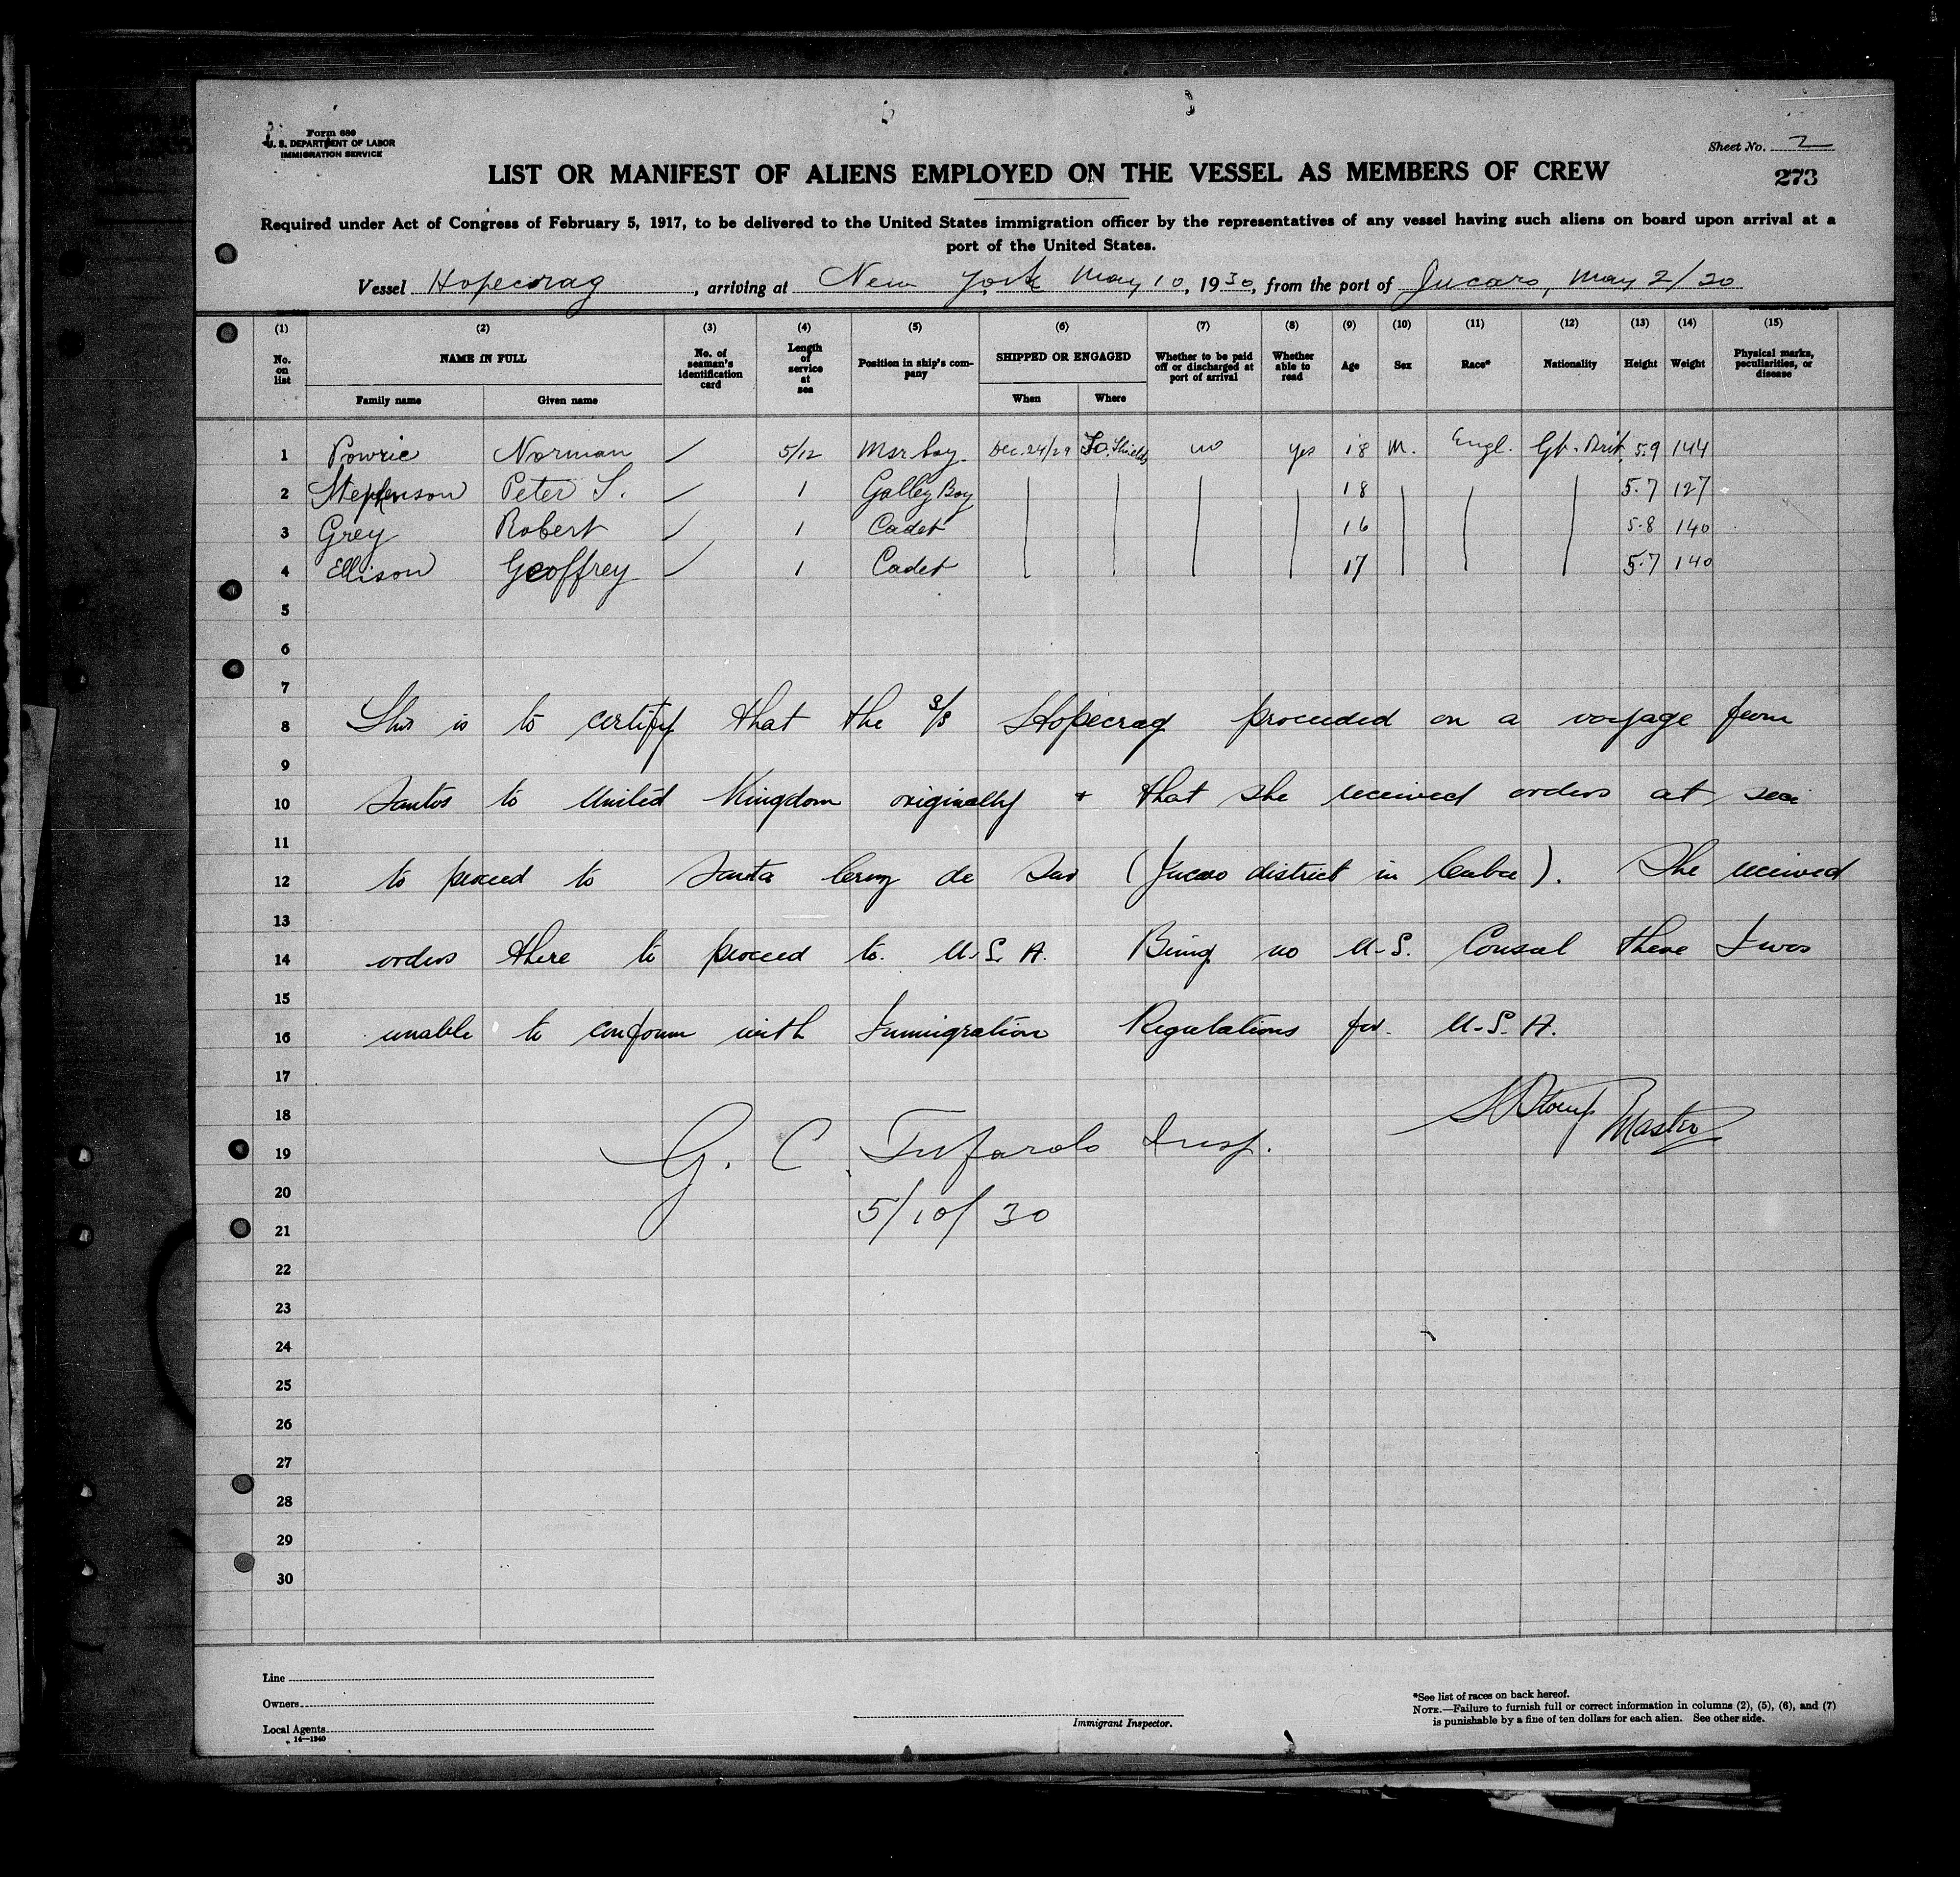 Form 680
U. S. DEPARTMENT OF LABOR
IMMIGRATION SERVICE
Sheet No. 2
273
LIST OR MANIFEST OF ALIENS EMPLOYED ON THE VESSEL AS MEMBERS OF CREW
Required under Act of Congress of February 5, 1917, to be delivered to the United States immigration officer by the representatives of any vessel having such aliens on board upon arrival at a
port of the United States.
Vessel Hopecrag, arriving at New York May 10, 1930, from the port of Jucaro, May 2/30
(1) (2) (3) (4) (5) (6) (7) (8) (9) (10) (11) (12) (13) (14) (15)
No. on list NAME IN FULL No. of seaman's identification card Length of service at sea Position in ship's company SHIPPED OR ENGAGED Whether to be paid off or discharged at port of arrival Whether able to read Age Sex Race* Nationality Height Weight Physical marks, peculiarities, or disease
Family name Given name When Where
1 Powrie Norman 5/12 Msr. boy Dec. 24/29 So. Shields no yes 18 M. Engl. Gt. Brit. 5.9 144
2 Stephenson Peter S. 1 Galley Boy 18 5.7 127
3 Grey Robert 1 Cadet 16 5.8 140
4 Ellison Geoffrey 1 Cadet 17 5.7 140
5
6
7
8 This is to certify that the S/S Hopecrag proceeded on a voyage from
9
10 Santos to United Kingdom originally + that she received orders at sea
11
12 to proceed to Santa Cruz de Sur (Jucaro district in Cuba). She received
13
14 orders there to proceed to. U.S.A. Being no U.S. Consul there I was
15
16 unable to conform with Immigration Regulations for. U.S.A.
17
18 Master
19 G. C. Tufarolo Insp.
20
21 5/10/30
22
23
24
25
26
27
28
29
30
Line
Owners
Local Agents
14—1240
Immigrant Inspector.
*See list of races on back hereof.
NOTE.—Failure to furnish full or correct information in columns (2), (5), (6), and (7)
is punishable by a fine of ten dollars for each alien. See other side.